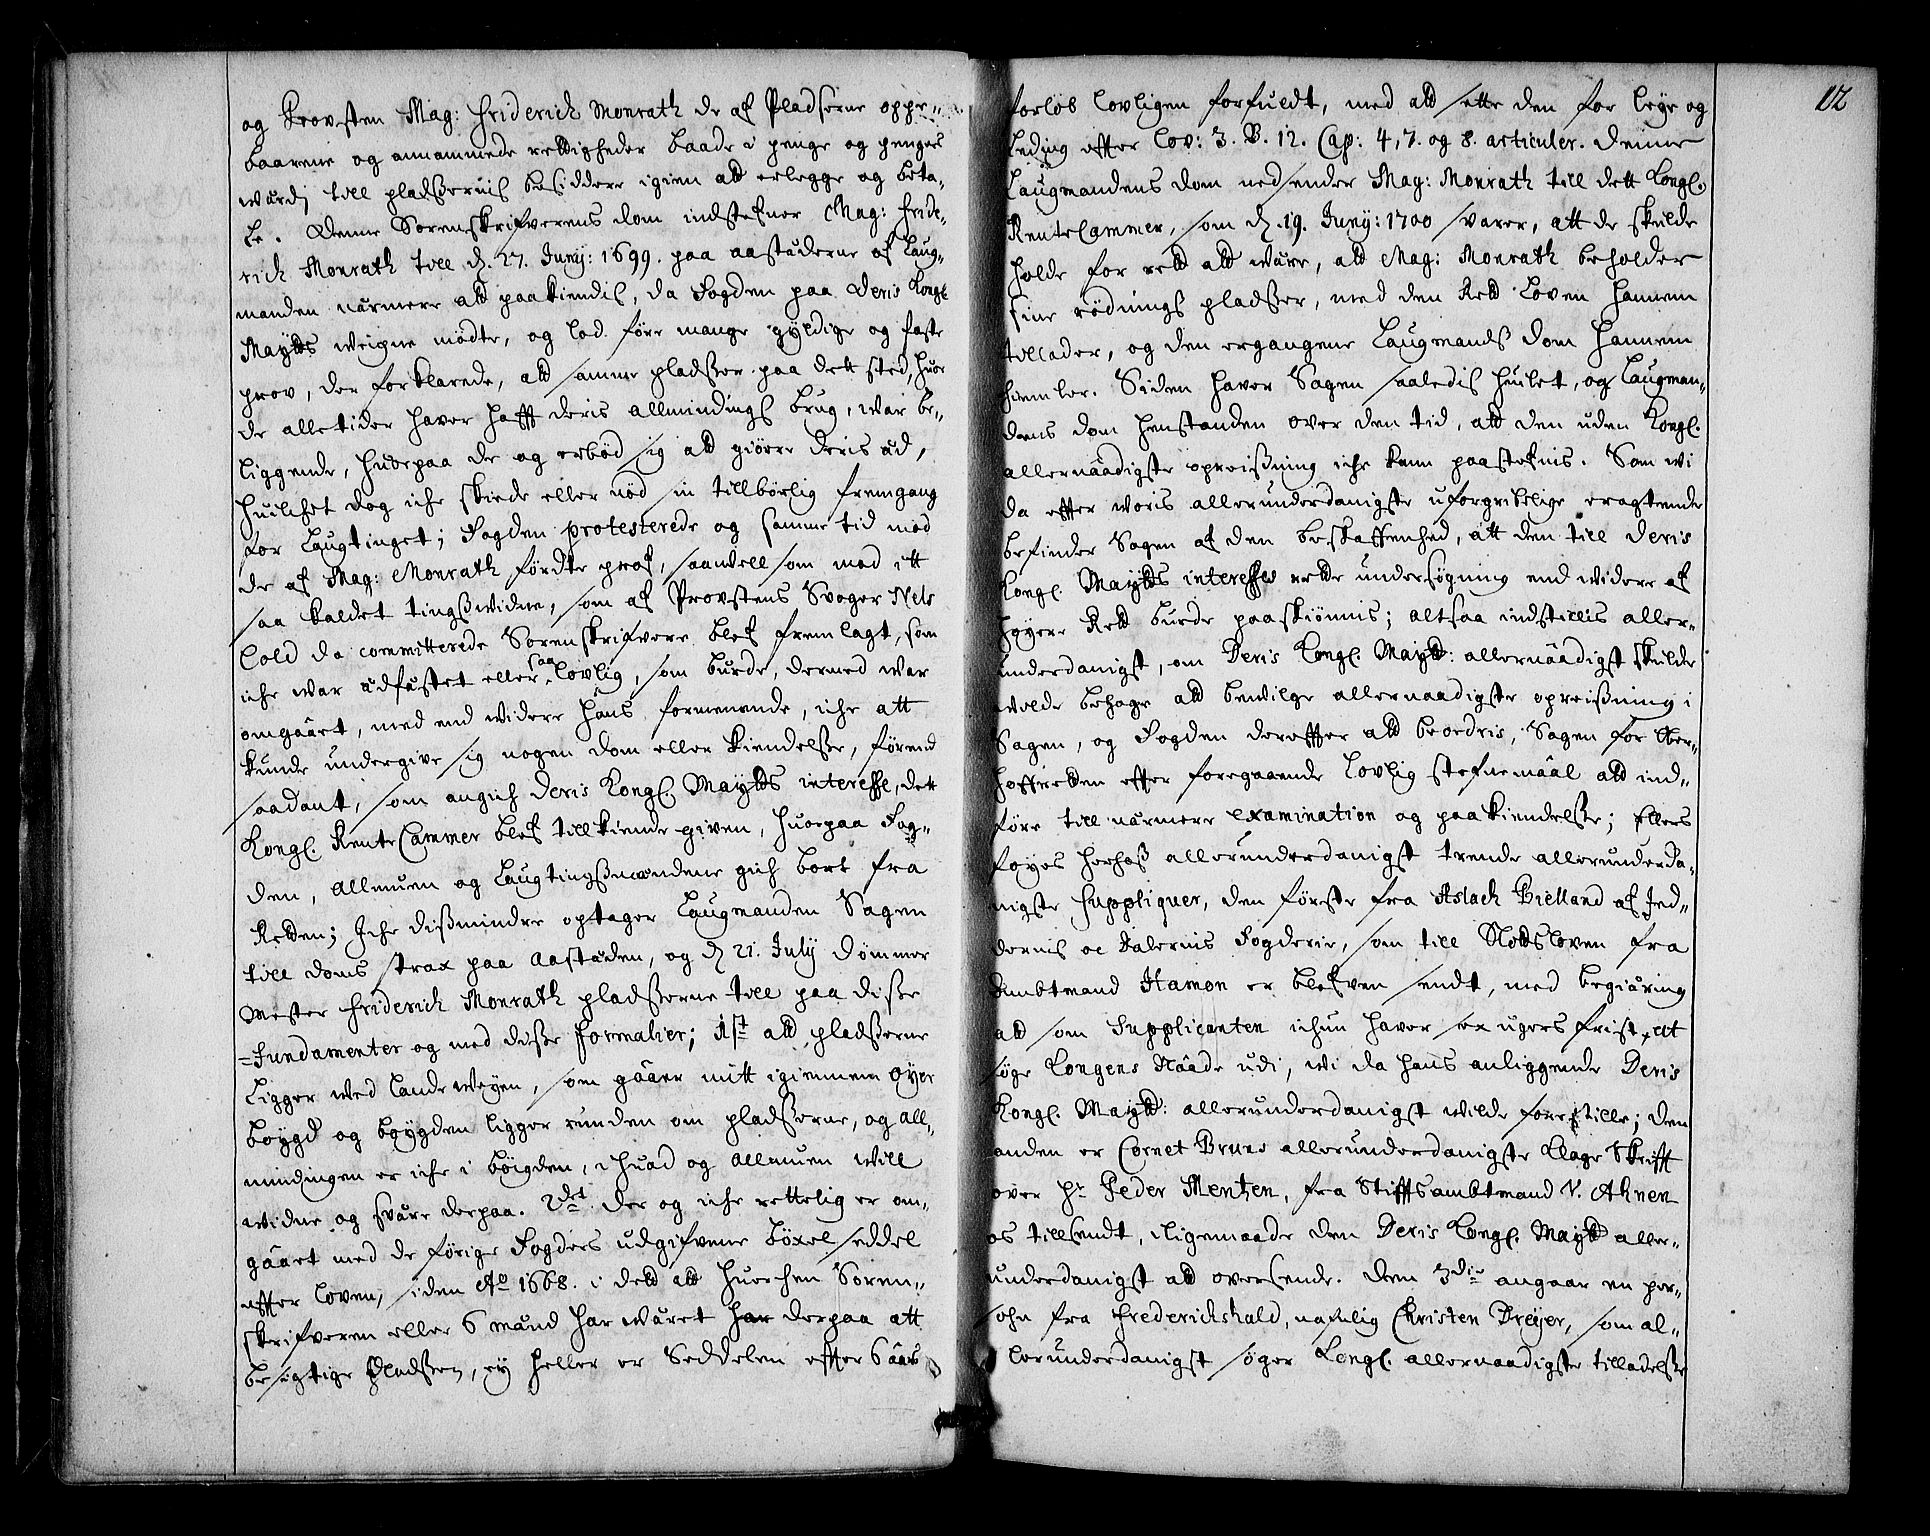 og Provsten Mag: Friderich Monrath de af Pladserne oppe-
baarene og annammede rettigheder baade i penge og penges
wurdj till pladsernis besiddere igien att erlegge og beta-
le. Denne Sorenskrifverens dom indstefner Mag: Fride-
rich Monrath till d. 27. Junij: 1699. paa aastæderne af Laug-
manden närmere att paakiendis, da Fogden paa Deris Kongl.
Maytts weigne mødte, og lod føre mange gyldige og faste
prov, der forklarede, att samme pladser paa dett sted, huor
de alle tider haver hafft deris allmindings brug, war be-
liggende, huorpaa de og erbød sig att giøre deris æd,
huilchet dog iche skiede eller nød sin tillbørlig fremgang
for Laugtinget; Fogden protesterede og samme tid mod
de af Mag: Monrath førdte prof, saawell som mod itt
saa kaldet tingswidne, som af Provstens Svoger Nels
Lold da committerede Sorenskrifvere blef fremlagt, som
iche war udfæstet eller saa lovlig, som burde, dermed war
omgäaet, med end widere hans formenende, iche att
kunde undergive sig nogen dom eller kiendelse, førend
saadant, som angich Deris Kongl. Maytts interesse, dett
Kongl. RenteCammer blef tillkiende given, huorpaa Fog-
den, Allmuen og Laugtingsmændene gich bort fra
Retten; Iche dismindre optager Laugmanden Sagen
till doms strax paa Aastæden, og d. 21. July dømmer
Mester Friderich Monrath pladserne till paa disse
Fundamenter og med disse Formalier; 1st att pladserne
Ligger wed Landeweyen, som gäaer mitt igiennem Øyer
boygd og boygden ligger runden om pladserne, og All-
mindingen er iche i bøigden, ihuad og Allmuen will
widne og sväre derpaa. 2det der og iche rettelig er om-
gäaet med de førige Fogders udgifvene Böxelseddel
effter Loven, siden Ao 1668. i dett att huerchen Soren-
skrifveren eller 6 mænd har wäret har derpaa att
besigtige Pladsen, ey heller er Seddelen effter 6 äars
12
forløb lovligen forfuldt, med att sette den for leye og
leding effter lov: 3. B. 12. Cap: 4, 7. og 8. articuler. Denne
Laugmandens dom nedsender Mag: Monrath till dett Kongl.
RenteCammer, som d. 19. Junij: 1700 svarer, att de skulde
holde for rett att wäre, att Mag: Monrath beholder
sine rödnings pladser, med den Rett Loven hannem
tillader, og den ergangene Laugmands dom hannem
hiemler. Siden haver Sagen saaledis huilet, og Laugman-
dens dom henstanden over den tid, att den uden Kongl.
allernäadigste opreisning iche kann paastefnis. Som wi
da effter woris allerunderdanigste uforgribelige eragtende
befinder Sagen af den beskaffenhed, att den till Deris
Kongl. Maytts interesses rette undersøgning end widere af
høyere Rett burde paaskiønnis; altsaa indstillis aller-
underdanigst, om Deris Kongl. Maytt: allernäadigst skulde
wilde behage att bewilge allernaadigste opreisning i
Sagen, og Fogden dereffter att beordris, Sagen for Ober-
hoffretten effter foregaaende Lovlig stefnemäal att ind-
føre till närmere Examination og paakiendelse; Ellers
føyes herhos allerunderdanigst trende allerunderda-
nigste Suppliquer, den første fra Aslach Bielland af Jed-
dernis oc Dalernis Fogderie, som till Nodsloven fra
Ambtmand Hamon er blefven sendt, med begiäring
att som Supplicanten ichun haver sex ugers frist, at
søge Kongens Näade udi, wi da hans anliggende Deris
Kongl. Maytt: allerunderdanigst wilde forestille; den
anden er Cornet Bruns allerunderdanigste Klage Skrifft
over Hr. Peder Mentzen, fra Stifftsambtmand V. Ahnen
os tillsendt, iligemaade den Deris Kongl. Maytt aller-
underdanigst att oversende. Dem 3die angaar en per-
sohn fra Frederichshald, nafnlig Christen Dreyer, som al-
lerunderdanigst søger Kongl. allernaadigste tilladelse